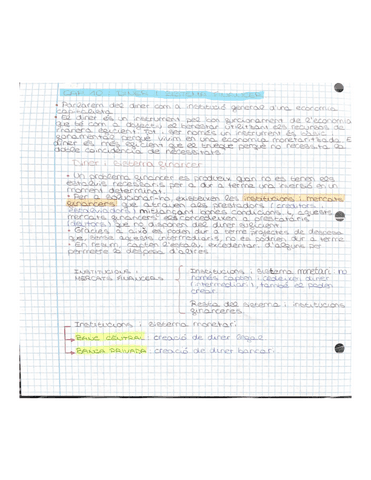 • Parlarem del diner com a institució general d'una economia capitalista.
• El diner és un instrument pel bon funcionament de l'economia
que té com a objectiu el benestar utilitzant els recursos de
manera eficient. Tot i ser només un instrument és bàsic
perquè vivim en una economia monetaritzada. El
diner és més eficient que el trueque perquè no necessita de
doble coincidència de necessitats.
Diner i Sistema financer
• Un problema financer es produeix quan no es tenen els
estalvis necessaris per a dur a terme una inversió en un
moment determinat.
• Per a solucionar-ho, existeixen les institucions i mercats
financers que atrauen als prestadors i creditors
(estalviadors) mitjançant bones condicions i, aquests
mercats financers concedeixen a prestataris
(deutors) que no disponen del diner suficient.
• Gràcies a això es poden dur a terme projectes de despesa
que, sense aquests intermediaris, no es podrien dur a terme.
• En resum, capten l'estalvi excedentari d'alguns per
permetre la despesa d'altres.
INSTITUCIONS I
MERCATS FINANCERS
Institucions i sistema monetari: no
només capten i cedeixen diner
(intermediari), també el poden
crear.
Resta del sistema i institucions
financeres.
Institucions i sistema monetari:
BANC CENTRAL: creació de diner legal
BANCA PRIVADA: creació de diner bancari.